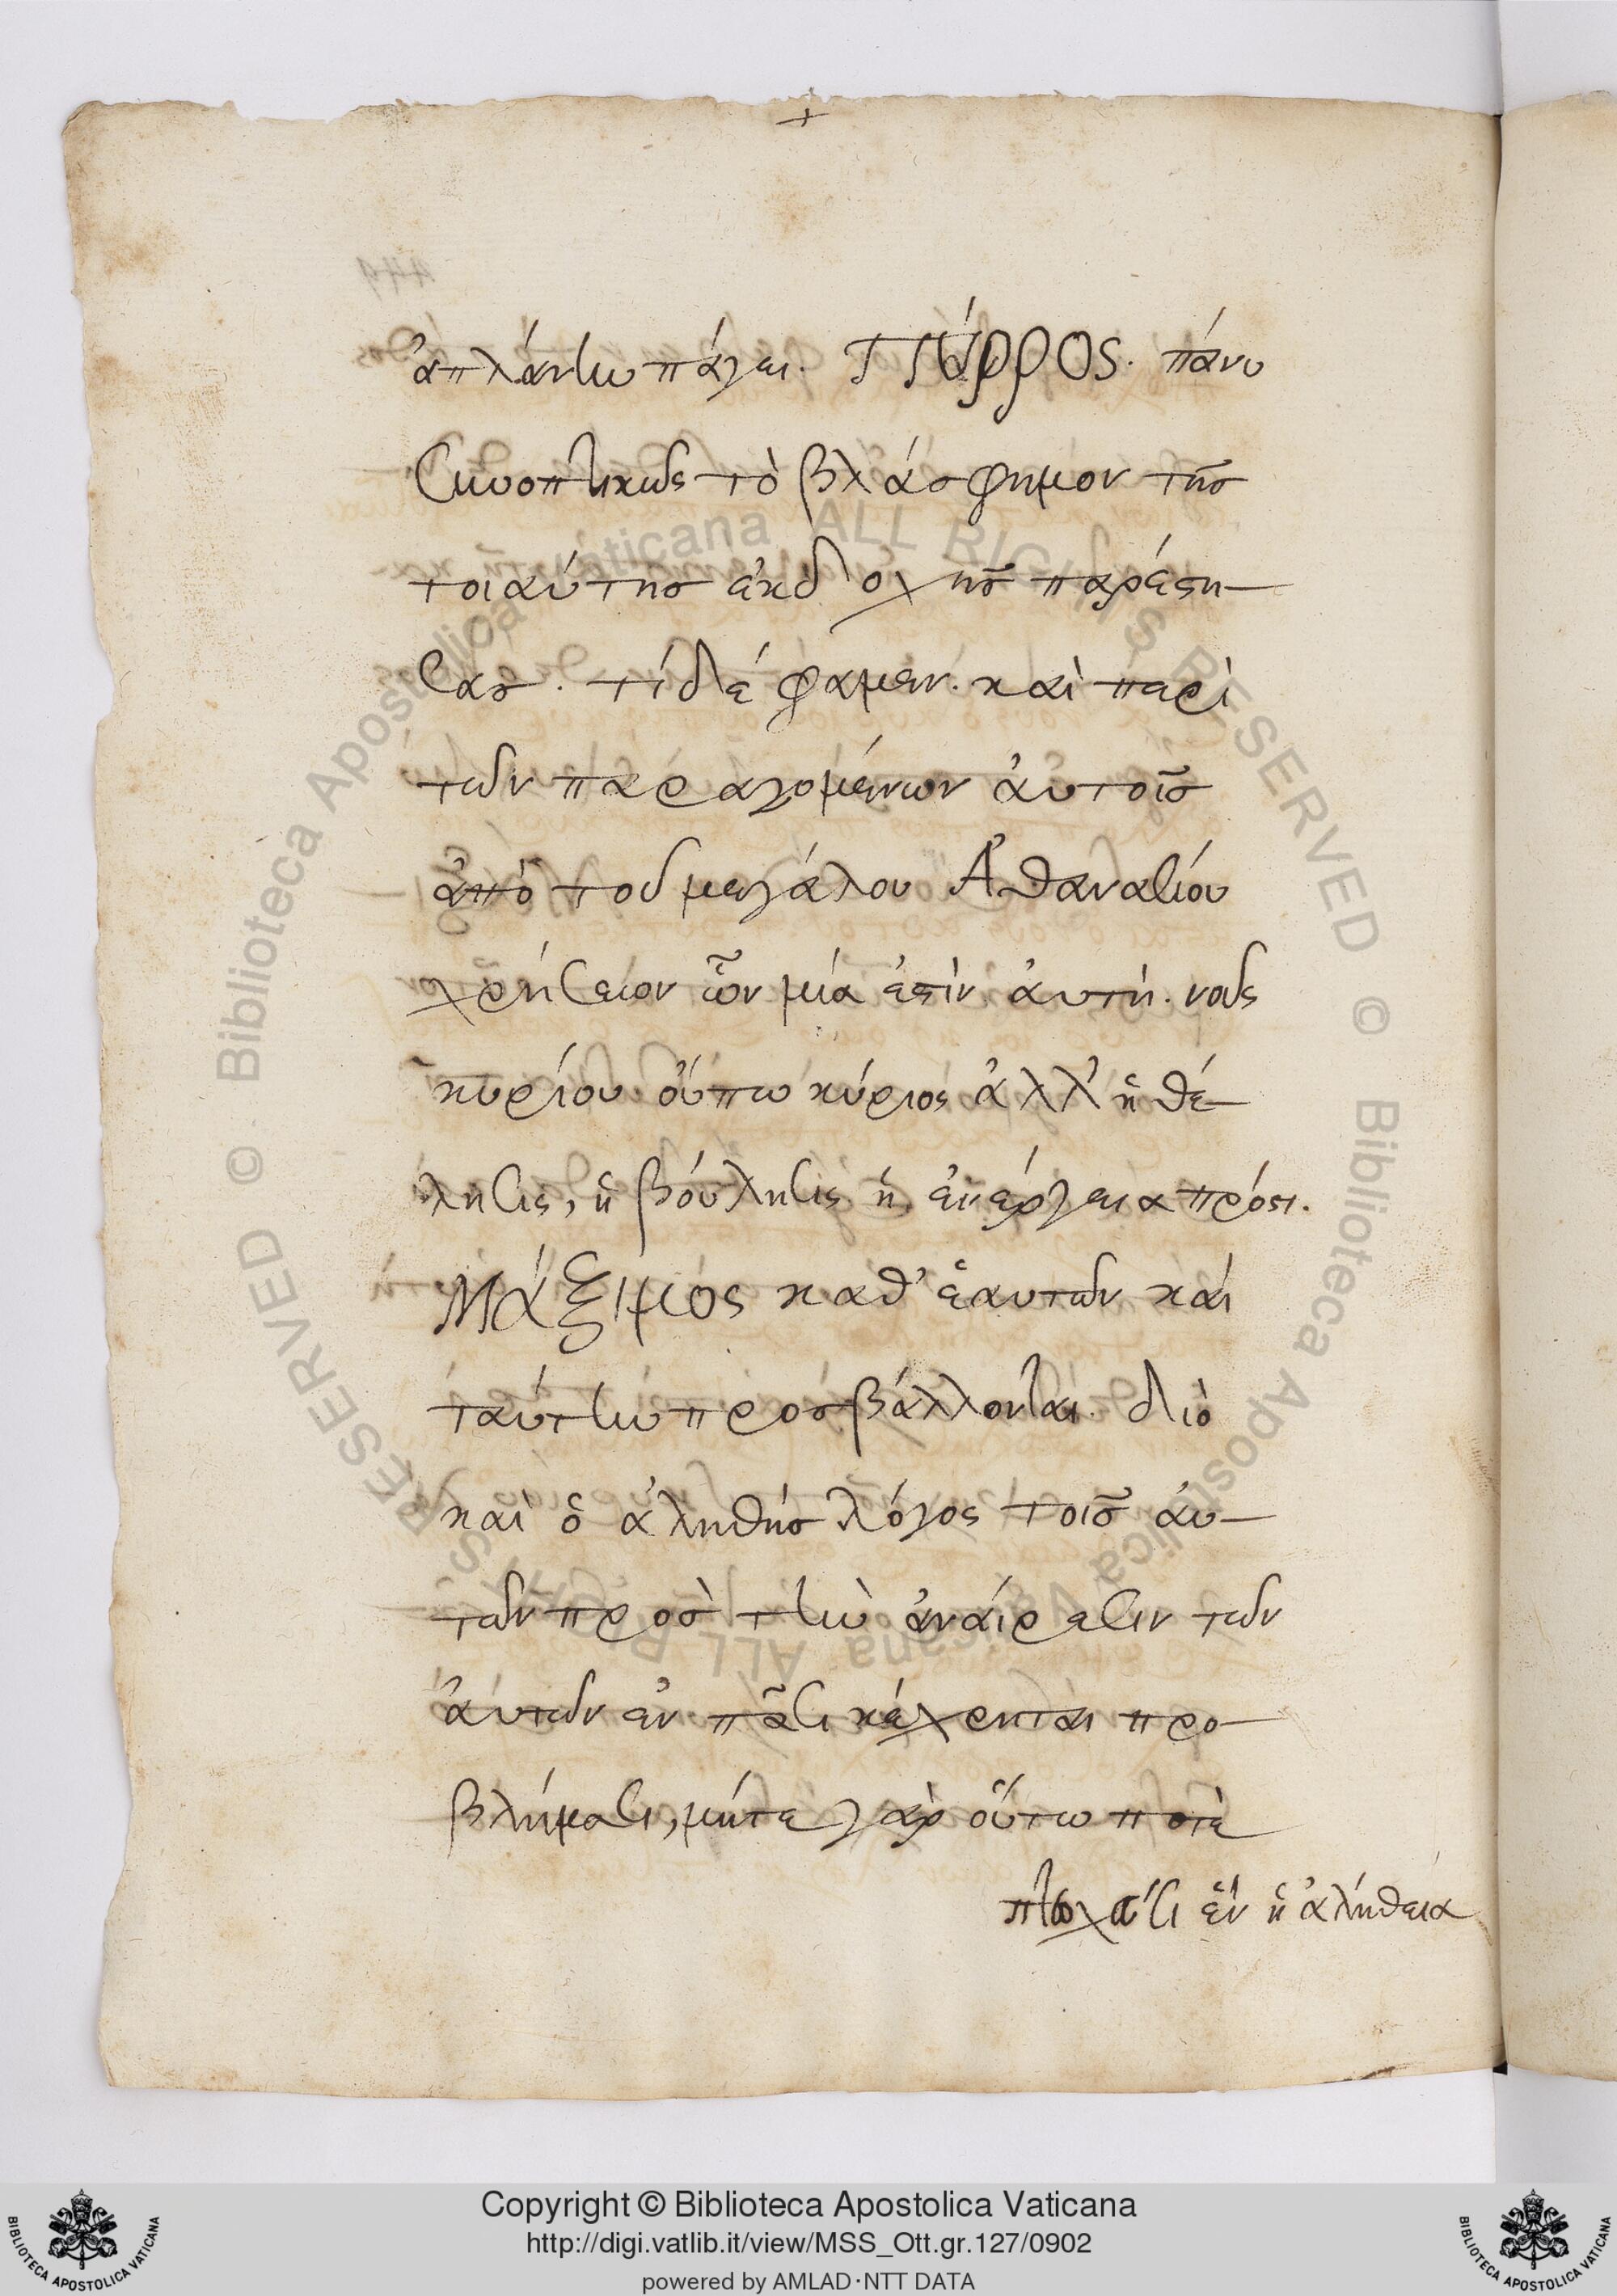 +
ἀπλάντην πάγει. ΠΎΡΡΟΣ. πάνυ
συνοπτικῶς τὸ βλάσφημον τῆς
τοιαύτης ἐκδοχῆς παρέστη-
σας. τί δέ φαμεν. καὶ περὶ
τῶν παραγομένων ἀυτοῖς
ἀπὸ τοῦ μεγάλου Ἀθανασίου
χρήσεων ὧν μία ἐστὶν ἀυτή. νοῦς
κυρίου οὔπω κύριος ἀλλ' ἢ θέ-
λησις, ἢ βούλησις ἢ ἐνέργεια πρόστι.
Μάξιμος καθ' ἑαυτῶν κάι
ταύτην προσβάλλονται. διὸ
καὶ ὁ ἀληθής λόγος τοῖς ἀυ-
τῶν πρὸς τὴν ἀνάιρεσιν τῶν
ἀυτῶν ἐν πᾶσι κέχρηται προ-
βλήμασι, μήτε γὰρ ὅυτω ποτὲ
πτωχεύσειεν ἡ ἀλήθεια
Copyright © Biblioteca Apostolica Vaticana
http://digi.vatlib.it/view/MSS_Ott.gr.127/0902
powered by AMLAD·NTT DATA
BIBLIOTECA APOSTOLICA VATICANA
BIBLIOTECA APOSTOLICA VATICANA
© Biblioteca Apostolica Vaticana ALL RIGHTS RESERVED
© Biblioteca Apostolica Vaticana ALL RIGHTS RESERVED